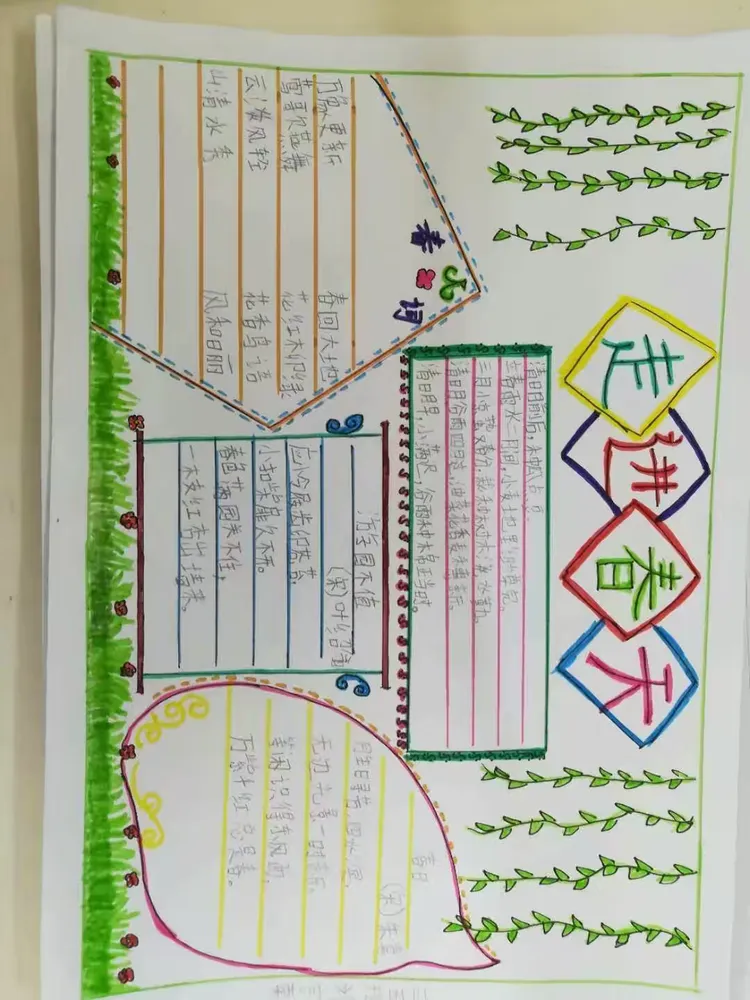 走进春天
春词
万象更新 春回大地
莺歌燕舞 花红柳绿
云淡风轻 花香鸟语
山清水秀 风和日丽
清明前后,种瓜点豆。
清明早,小满迟,谷雨种棉正当时。
游园不值
(宋)叶绍翁
应怜屐齿印苍苔
小扣柴扉久不开。
春色满园关不住,
一枝红杏出墙来。
春日
(宋)朱熹
胜日寻芳泗水滨,
无边光景一时新。
等闲识得东风面,
万紫千红总是春。